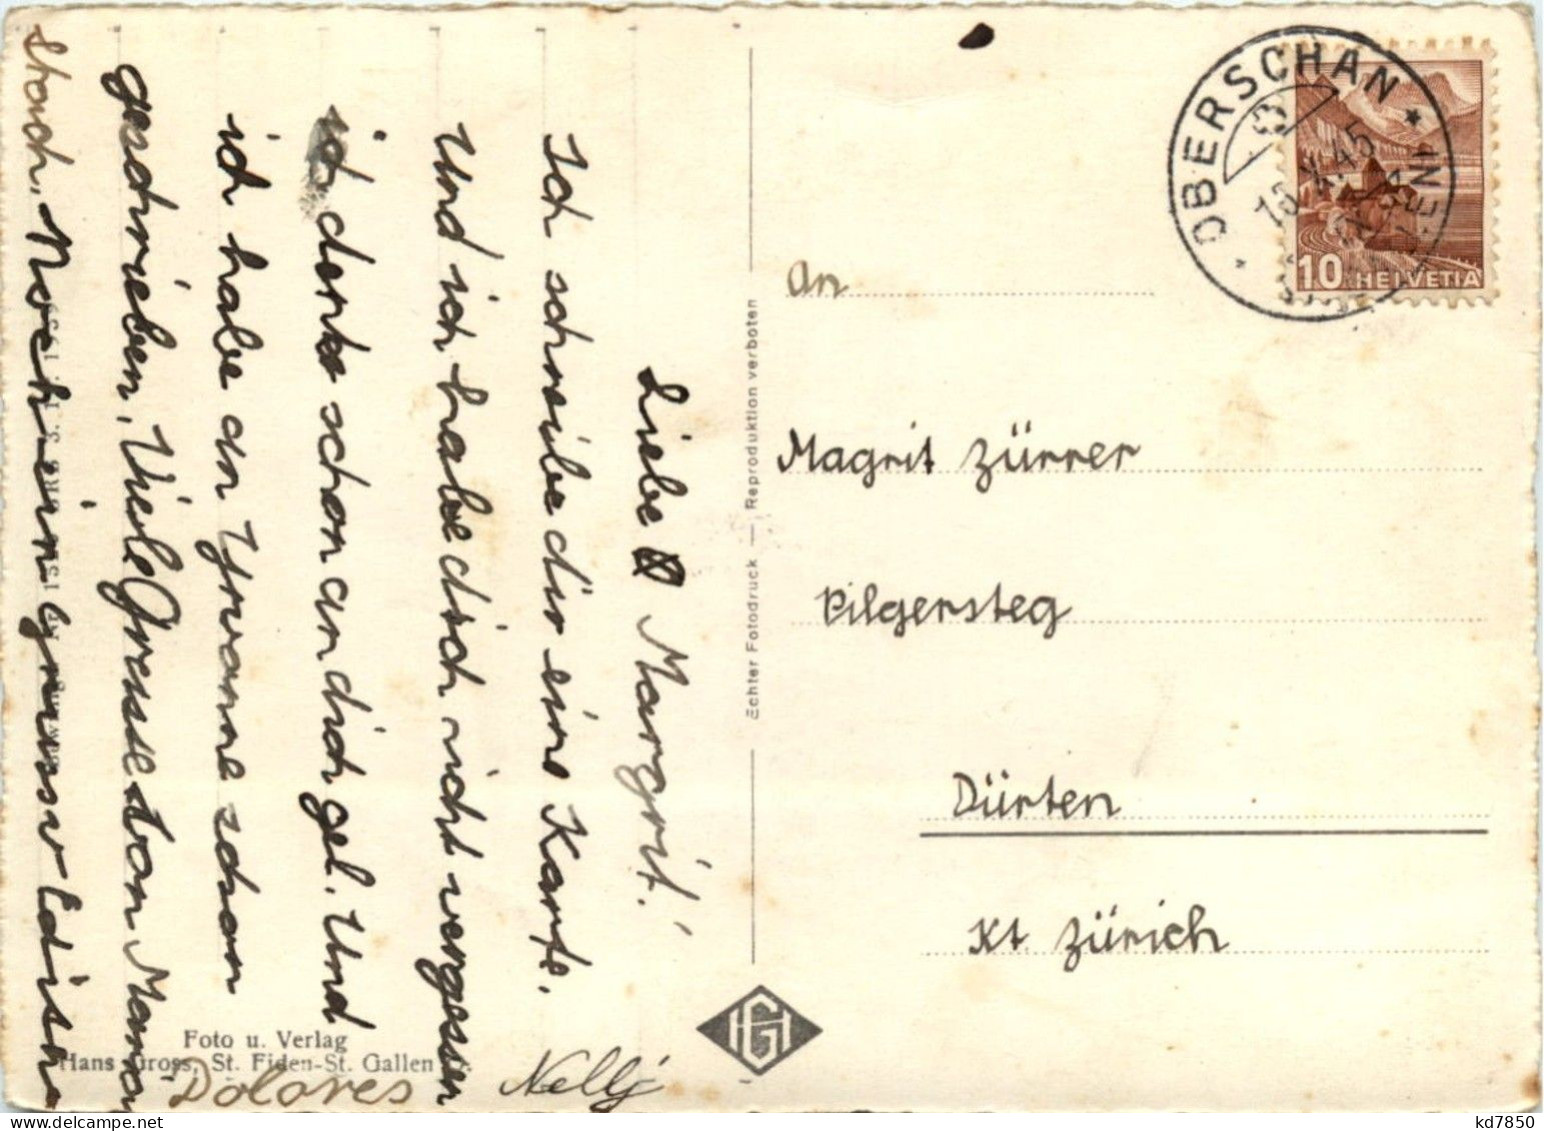 Liebe Margrit!
Ich schreibe dir eine Karte.
Und ich habe dich nicht vergessen
ich denke schon an dich gel. Und
ich habe an Yvonne schon
geschrieben. Viele Grüsse von Maria
Dolores
Nelly
Noch ein gruss v
Foto u. Verlag
Hans Gross, St. Fiden-St. Gallen
Echter Fotodruck — Reproduktion verboten
HG
OBERSCHAN
45
10 HELVETIA
An
Magrit Zürrer
Pilgersteg
Dürten
Kt. Zürich
kd7850